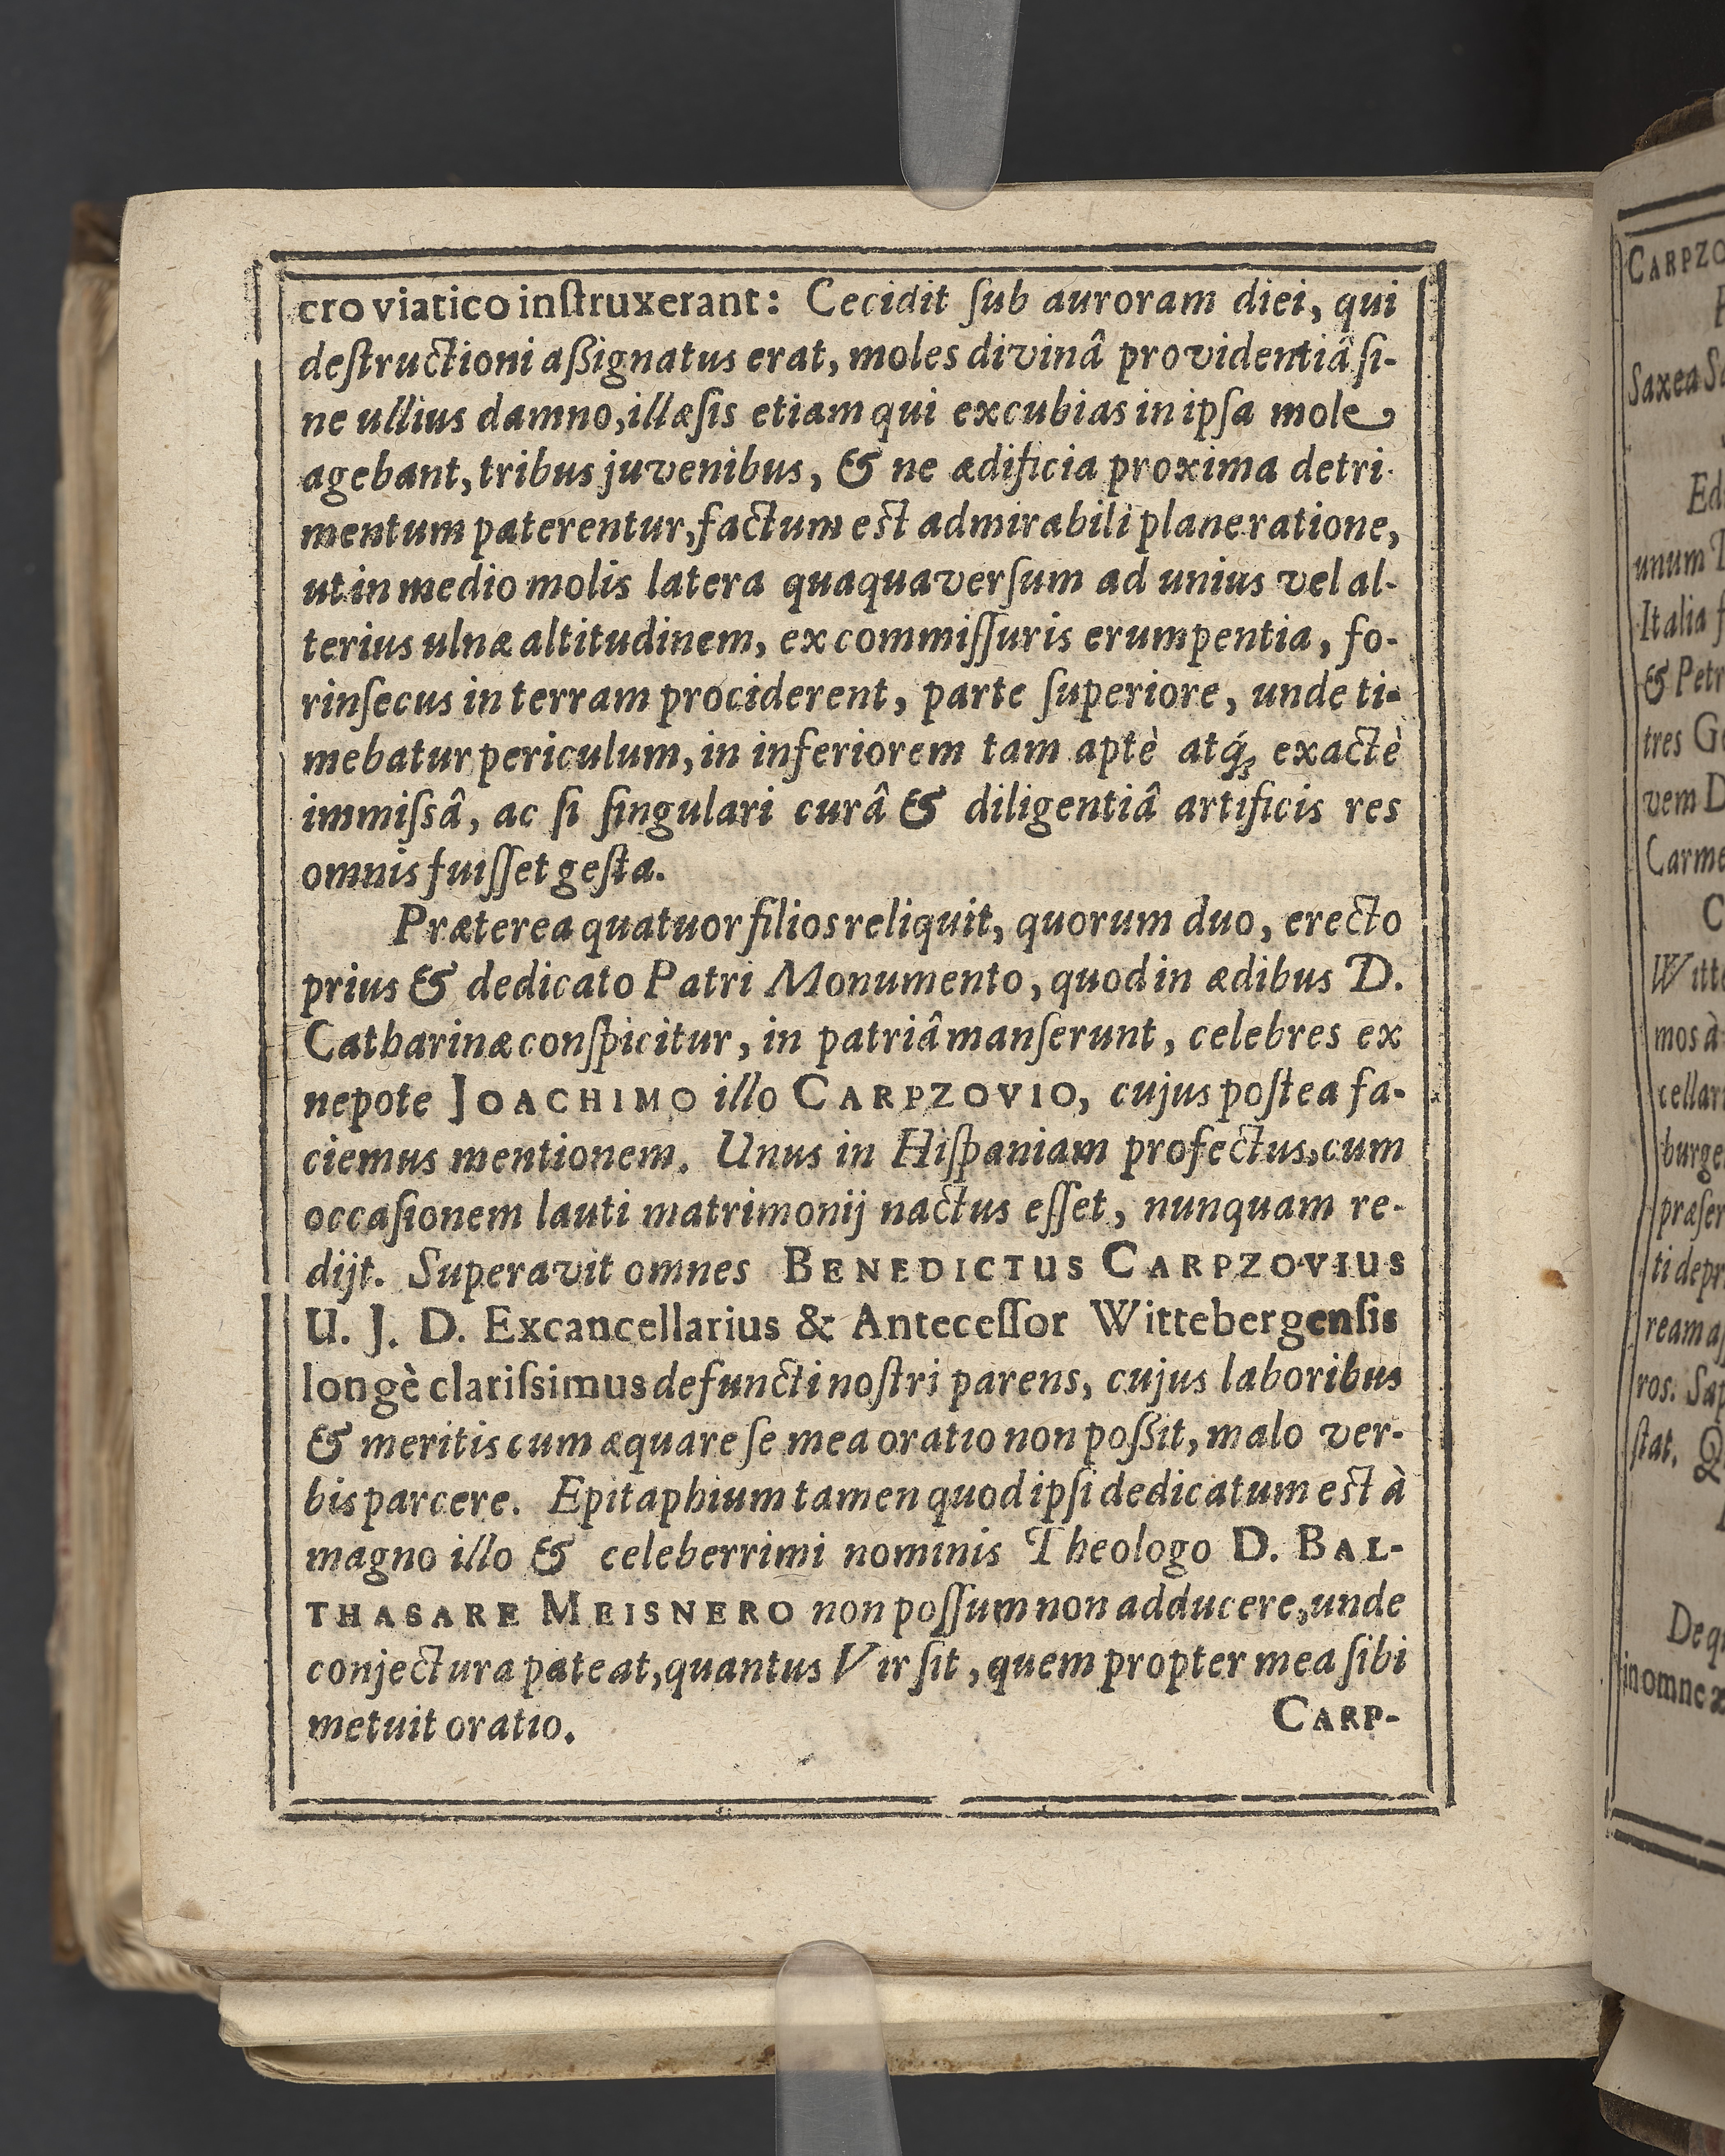 cro viatico inſtruxerant: Cecidit ſub auroram diei, qui
deſtructioni aßignatus erat, moles divinâ providentiâ ſi-
ne ullius damno, illæſis etiam qui excubias in ipſa mole
agebant, tribus juvenibus, & ne ædificia proxima detri-
mentum paterentur, factum eſt admirabili plane ratione,
ut in medio molis latera quaquaverſum ad unius vel al-
terius ulnæ altitudinem, ex commiſſuris erumpentia, fo-
rinſecus in terram prociderent, parte ſuperiore, unde ti-
mebatur periculum, in inferiorem tam aptè atq́; exactè
immiſsâ, ac ſi ſingulari curâ & diligentiâ artificis res
omnis fuiſſet geſta.
Præterea quatuor filios reliquit, quorum duo, erecto
prius & dedicato Patri Monumento, quod in ædibus D.
Catharinæ conſpicitur, in patriâ manſerunt, celebres ex
nepote JOACHIMO illo CARPZOVIO, cujus poſtea fa-
ciemus mentionem. Unus in Hiſpaniam profectus, cum
occaſionem lauti matrimonij nactus eſſet, nunquam re-
dijt. Superavit omnes BENEDICTUS CARPZOVIUS
U. J. D. Excancellarius & Anteceſſor Wittebergenſis
longè clariſsimus defuncti noſtri parens, cujus laboribus
& meritis cum æquare ſe mea oratio non poßit, malo ver-
bis parcere. Epitaphium tamen quod ipſi dedicatum eſt à
magno illo & celeberrimi nominis Theologo D. BAL-
THASARE MEISNERO non poſſum non adducere, unde
conjectura pateat, quantus Vir ſit, quem propter mea ſibi
metuit oratio.
CARP-
CARPZO
Saxea
Ed
unum
Italia
& Petr
tres
vem
Carme
Witte
mos à
cellar
burge
præſer
ti depr
ream
ros.
ſtat.
De
in omne